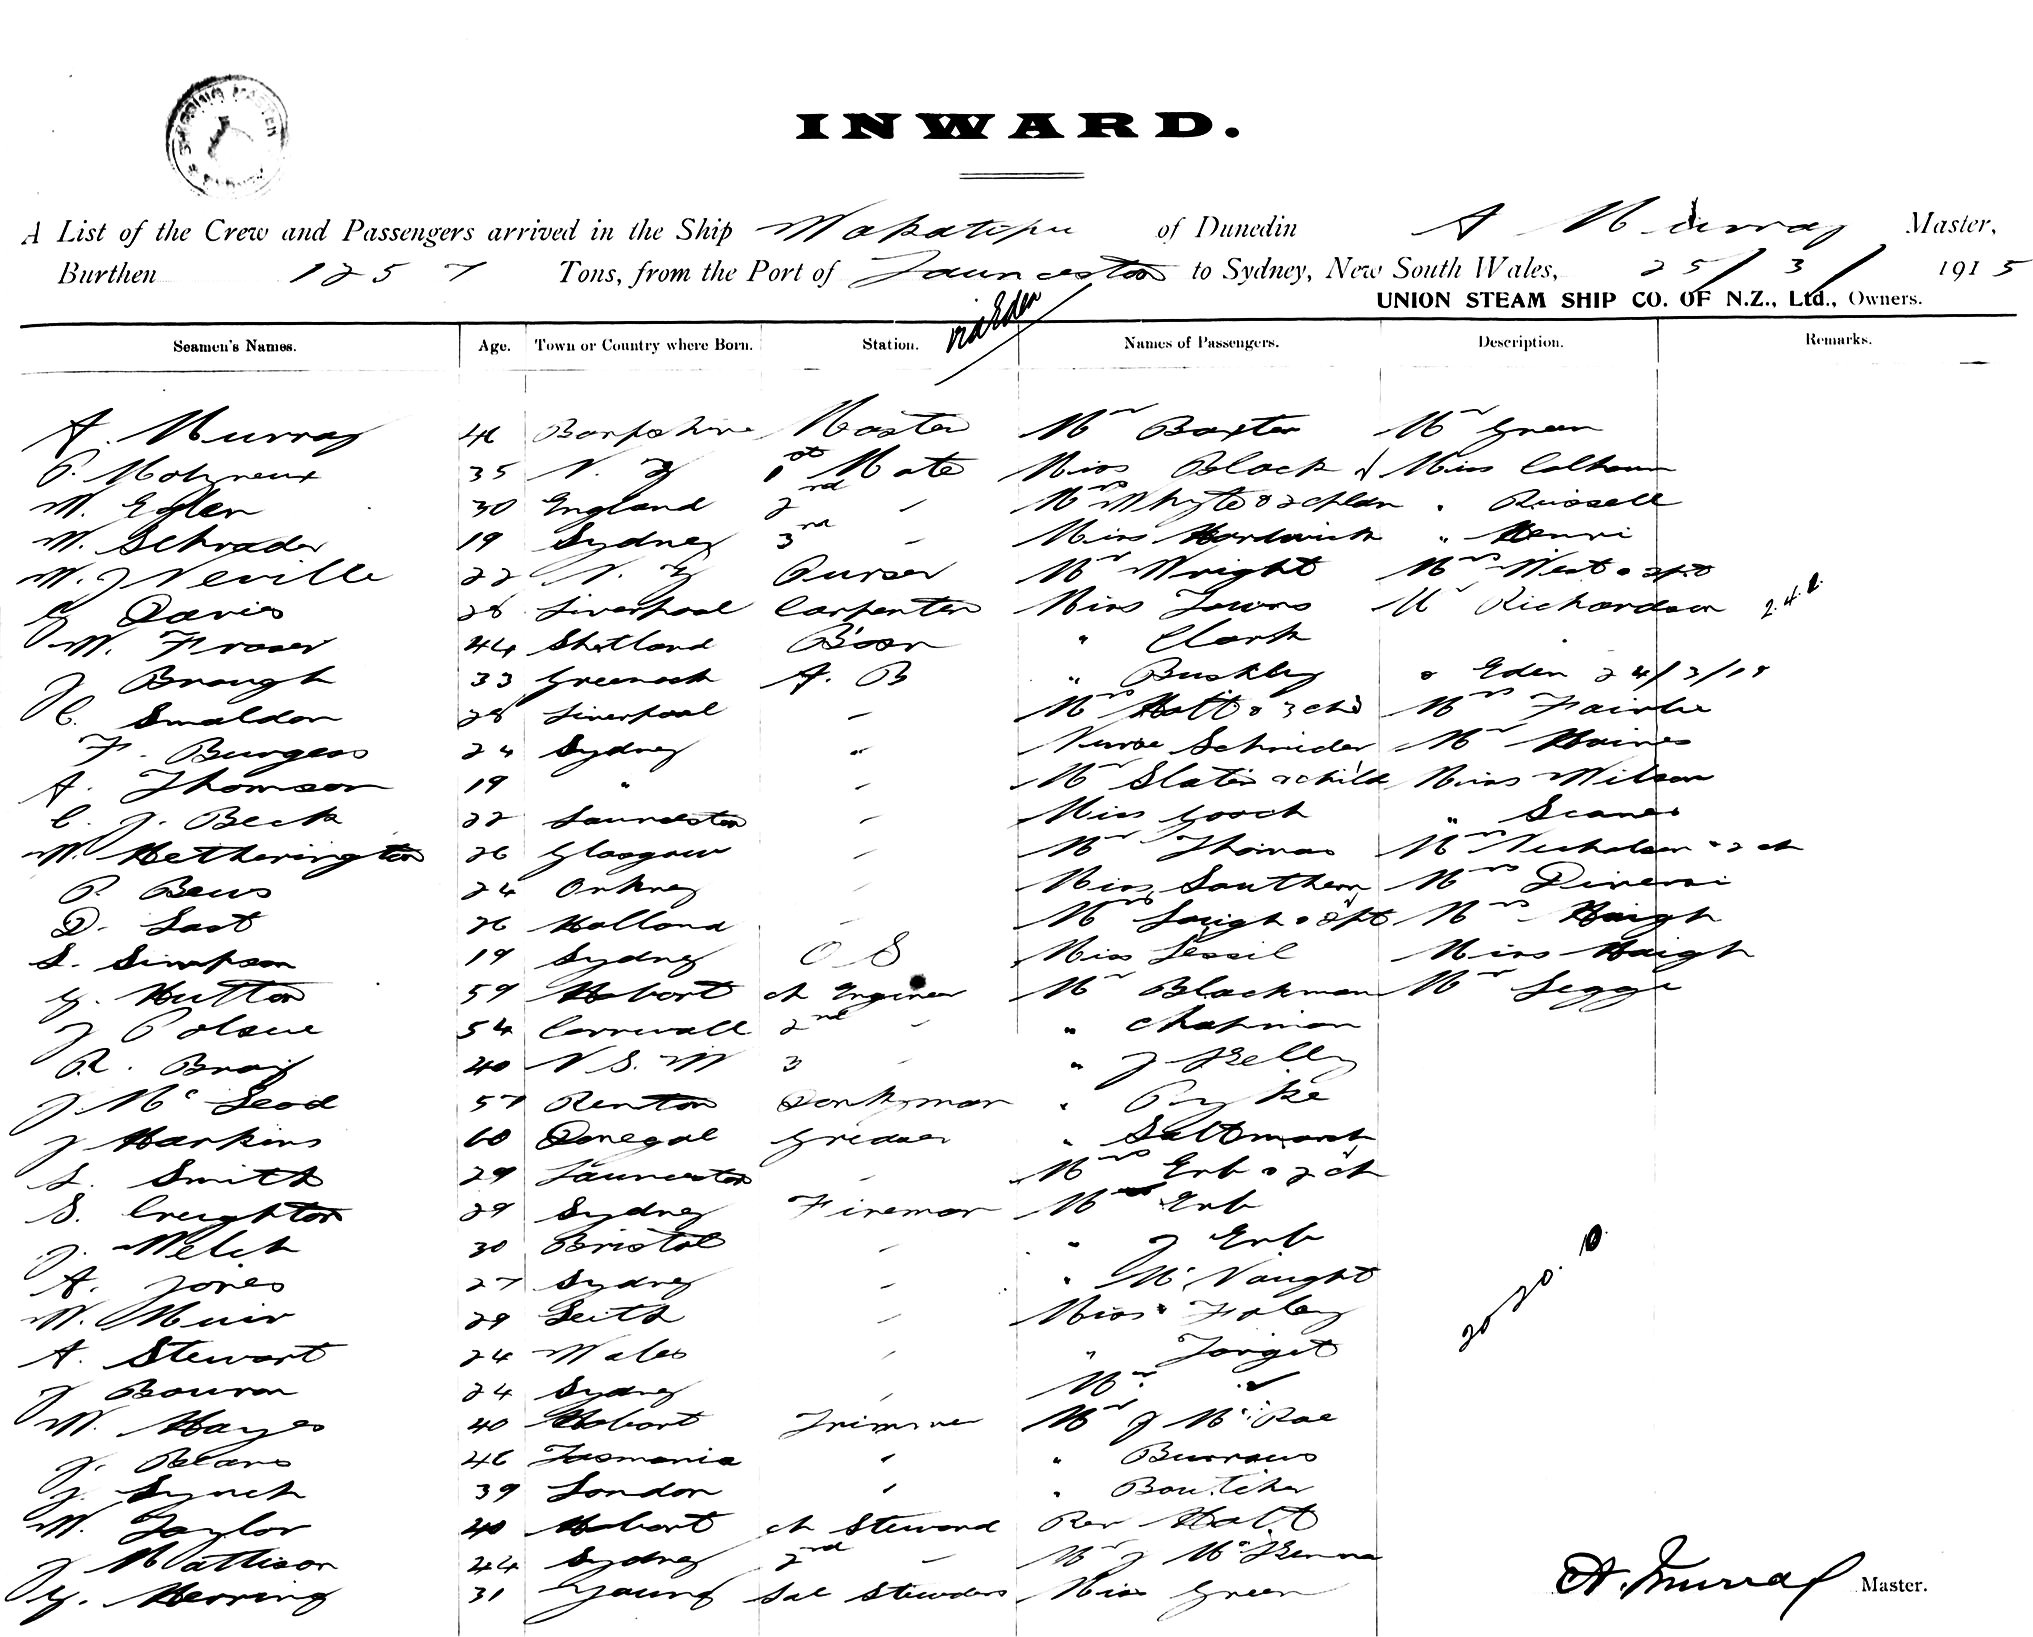 SHIPPING MASTER
INWARD.
A List of the Crew and Passengers arrived in the Ship Wakatipu of Dunedin A Murray Master,
Burthen 1257 Tons, from the Port of Launceston to Sydney, New South Wales, 25/3/1915
via Eden UNION STEAM SHIP CO. OF N.Z., Ltd., Owners.
Seamen's Names. Age. Town or Country where Born. Station. Names of Passengers. Description. Remarks.
A. Murray 46 Banffshire Master Mr Baxter Mr Green
P. Molyneux 35 N. Z 1st Mate Miss Black Miss Calhoun
W. Eglen 30 England 2nd " Mrs Whyte & 2 chldn " Russell
W. Schrader 19 Sydney 3rd " Miss Hardwick " Henri
W. J Neville 22 N. Z Purser Mr Wright Mrs West &
G Davies 28 Liverpool Carpenter Miss Towns Mr Richardson 2.4.2.
W. Fraser 44 Shetland Bosn " Clark
J Brough 33 Greenock A. B " Buskley Eden 24/3/15
C. Smaldon 28 Liverpool " Mrs Holt & 3 chd Mrs Fairlie
F. Burgess 24 Sydney " Nurse Schnider Mr Haines
A. Thomson 19 " " Mr Slater & child Miss Wilson
C. J. Beck 22 Launceston " Miss Gooch " Scanes
W. Hetherington 26 Glasgow " Mr Thomas Mrs Nicholson & 2 ch
P. Bews 24 Orkney " Miss Southern Mrs
D. Last 26 Holland " Mrs Mrs Haigh
S. Simpson 19 Sydney O S Miss Lessil Miss Haigh
G. Hutton 59 Hobart ch Engineer Mr Blackman Mr Legge
J Polsue 54 Cornwall 2nd " " Chapman
R. Bray 40 N. S. W 3 " " J Kelly
J McLeod 57 Renton Donkyman " Pyke
J Harkins 60 Donegal Greaser " Saltmarsh
L. Smith 29 Launceston " Mrs Erb & 2 ch
S. Creighton 29 Sydney Fireman Mr Erb
J. Welch 30 Bristol " " J Erb
A. Jones 27 Sydney " " McVaught
W. Muir 29 Leith " Miss Foley
A. Stewart 24 Wales " " Target
J Bouron 24 Sydney " Mr "
W. Hayes 40 Hobart Trimmer Mr J McRae
J. 46 Tasmania " " Burrows
J. Lynch 39 London " " Boutcher
W. Taylor 40 Hobart ch Steward Rev Holt
J Mattison 44 Sydney 2nd " Mr J McKenna
G. Herring 31 Young Sal Stewdess Miss Green
20 20. 10.
A. Murray Master.